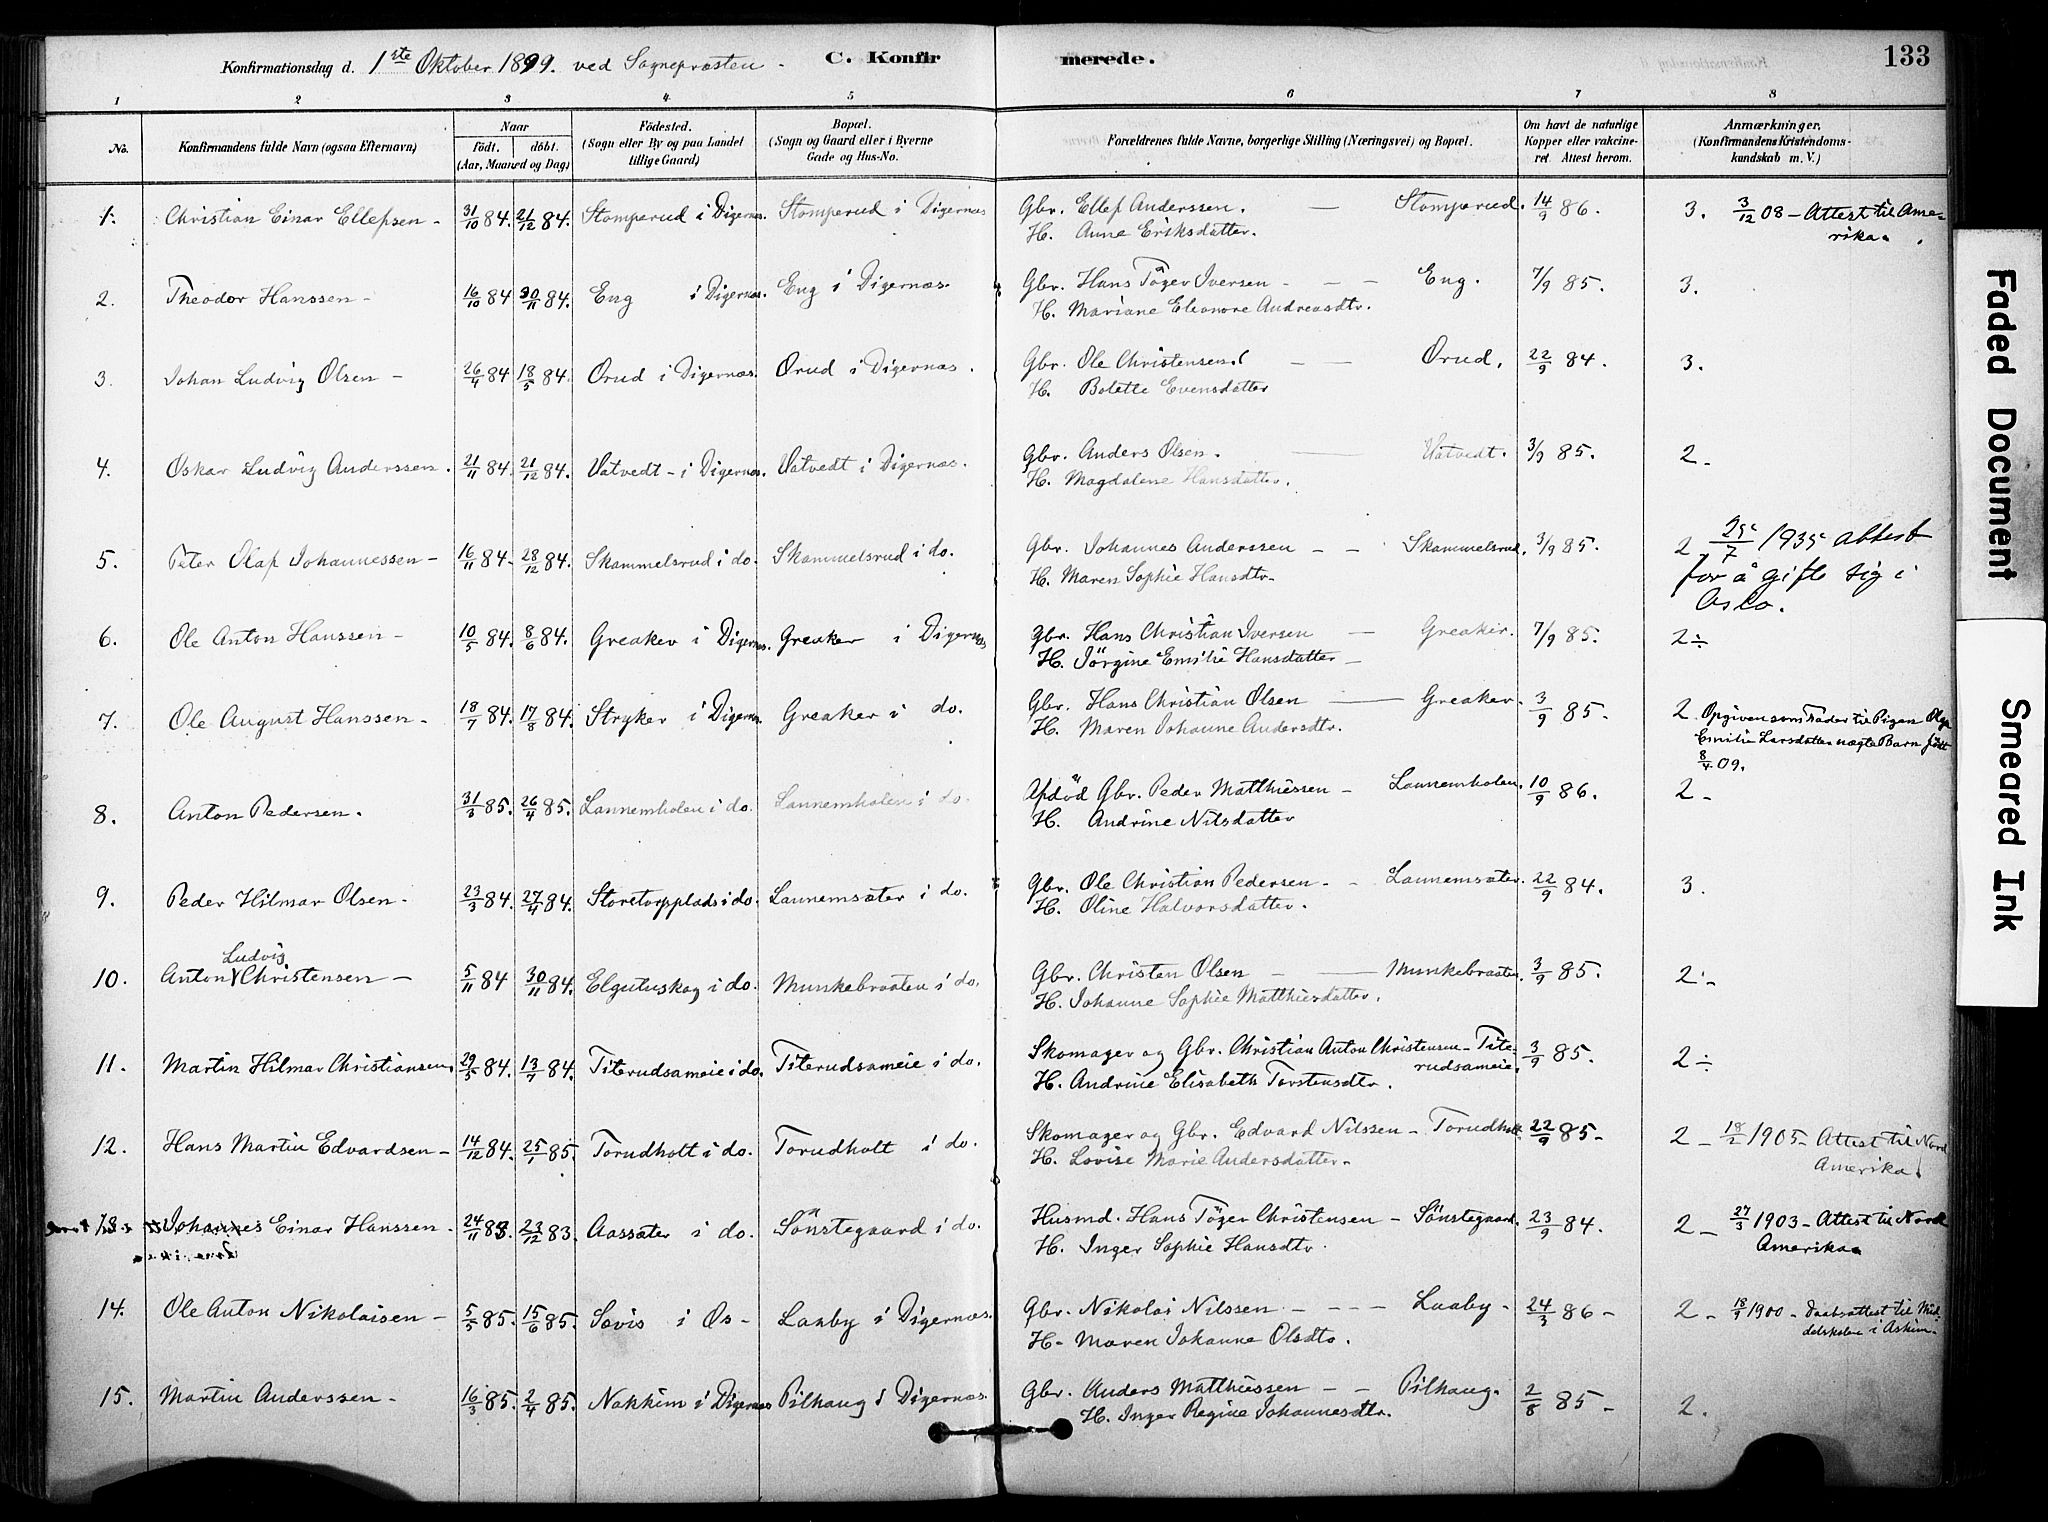 Konfirmationsdag d. 1ste Oktober 1899. ved Sognepræsten - C. Konfirmerede. 133
1 2 3 4. 5 6 7 8
No. Konfirmandens fulde Navn (ogsaa Efternavn) Naar født. døbt. (Aar, Maaned og Dag) Födested. (Sogn eller By og paa Landet tillige Gaard) Bopæl. (Sogn og Gaard eller i Byerne Gade og Hus-No. Forældrenes fulde Navne, borgerlige Stilling (Næringsvei) og Bopæl. Om havt de naturlige Kopper eller vakcineret. Attest herom. Anmærkninger. (Konfirmandens Kristendomskundskab m. V.)
1. Christian Einar Ellefsen - 31/10 84. 21/12 84. Stomperud i Digernæs. Stomperud i Digernæs Gbr. Ellef Anderssen. — Stomperud. 14/9 86. 3. 3/12 08 - Attest til Ame-
H. Anne Eriksdatter. rika.
2. Theodor Hanssen - 16/10 84 30/11 84. Eng i Digernæs. Eng i Digernæs. Gbr. Hans Töger Iversen - - - Eng. 7/9 85. 3.
H. Mariane Eleonore Andreasdtr.
3. Johan Ludvig Olsen - 26/4 84 18/5 84. Ørud i Digernæs. Ørud i Digernæs. Gbr. Ole Christensen. — — Ørud. 22/9 84. 3.
H. Bolette Evensdatter
4. Oskar Ludvig Anderssen. 21/11 84. 21/12 84. Vatvedt - i Digernæs. Vatvedt i Digernæs. Gbr. Anders Olsen. — Vatvedt. 3/9 85. 2 -
H. Magdalene Hansdatter.
5. Peter Olaf Johannessen - 16/11 84. 28/12 84. Skammelsrud i do. Skammelsrud i do. Gbr. Johannes Anderssen - - Skammelsrud. 3/9 85. 2. 25/7 1935 attest
H. Maren Sophie Hansdtr. for å gifte sig i
Oslo.
6. Ole Anton Hanssen - 10/5 84. 8/6 84. Greaker i Digernæs. Greaker i Digernæs Gbr. Hans Christian Iversen — Greaker. 7/9 85. 2 ÷
H. Jörgine Emilie Hansdatter -
7. Ole August Hanssen - 18/7 84. 17/8 84. Stryker i Digernæs Greaker i do. Gbr. Hans Christian Olsen — Greaker. 3/9 85. 2. Opgiven som Fader til Pigen Olga
H. Maren Johanne Andersdtr. Emilie Larsdatters uægte Barn født
8/4 09.
8. Anton Pedersen. 31/3 85. 26/4 85. Lannemholen i do. Lannemholen i do. Afdöd Gbr. Peder Matthiessen - Lannemholen. 10/9 86. 2 -
H. Andrine Nilsdatter
9. Peder Hilmar Olsen - 23/3 84. 27/4 84. Storetorpplads i do. Lannemsæter i do. Gbr. Ole Christian Pedersen - - Lannemsæter. 22/9 84. 3.
H. Oline Halvorsdatter.
Ludvig
10. Anton Christensen - 5/11 84 30/11 84. Elgutuskog i do. Munkebraaten i do. Gbr. Christen Olsen - — Munkebraaten. 3/9 85. 2 -
H. Johanne Sophie Matthiesdatter.
11. Martin Hilmar Christiansen. 29/5 84. 13/7 84. Titerudsameie i do. Titerudsameie i do. Skomager og Gbr. Christian Anton Christensen - Tite- 3/9 85. 2 ÷
H. Andrine Elisabeth Torstensdtr. rudsameie.
12. Hans Martin Edvardsen - 14/12 84. 25/1 85. Torudholt i do. Torudholt i do. Skomager og Gbr. Edvard Nilssen - Torudholt. 22/9 85 - 2 - 18/2 1905 - Attest til Nord
H. Lovise Marie Andersdatter - Amerika
13. Johannes Einar Hanssen - 24/11 83. 23/12 83. Aassæter i do. Sönstegaard i do. Husmd. Hans Töger Christensen - Sönstegaard. 23/9 84. 2 - 27/3 1903 - Attest til Nord
H. Inger Sophie Hansdtr. Amerika
14. Ole Anton Nikolaisen - 5/5 85. 15/6 85. Sævis i Os - Laaby i Digernæs. Gbr. Nikolai Nilssen - - - - Laaby - 24/3 86 - 2 - 18/9 1900 - Daabsattest til Mid-
H. Maren Johanne Olsdtr. delskolen i Askim -
15. Martin Anderssen - 16/3 85. 2/4 85. Nakkim i Digernæs Pilhaug i Digernæs. Gbr. Anders Matthiessen - - Pilhaug. 2/8 85 - 2.
H. Inger Regine Johannesdtr.
Faded Document
Smeared Ink